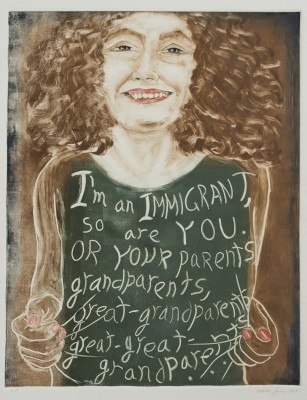 I'm an IMMIGRANT,
so are YOU.
OR YOUR parents
grandparents,
great-grandparents
great-great-
grandparents...